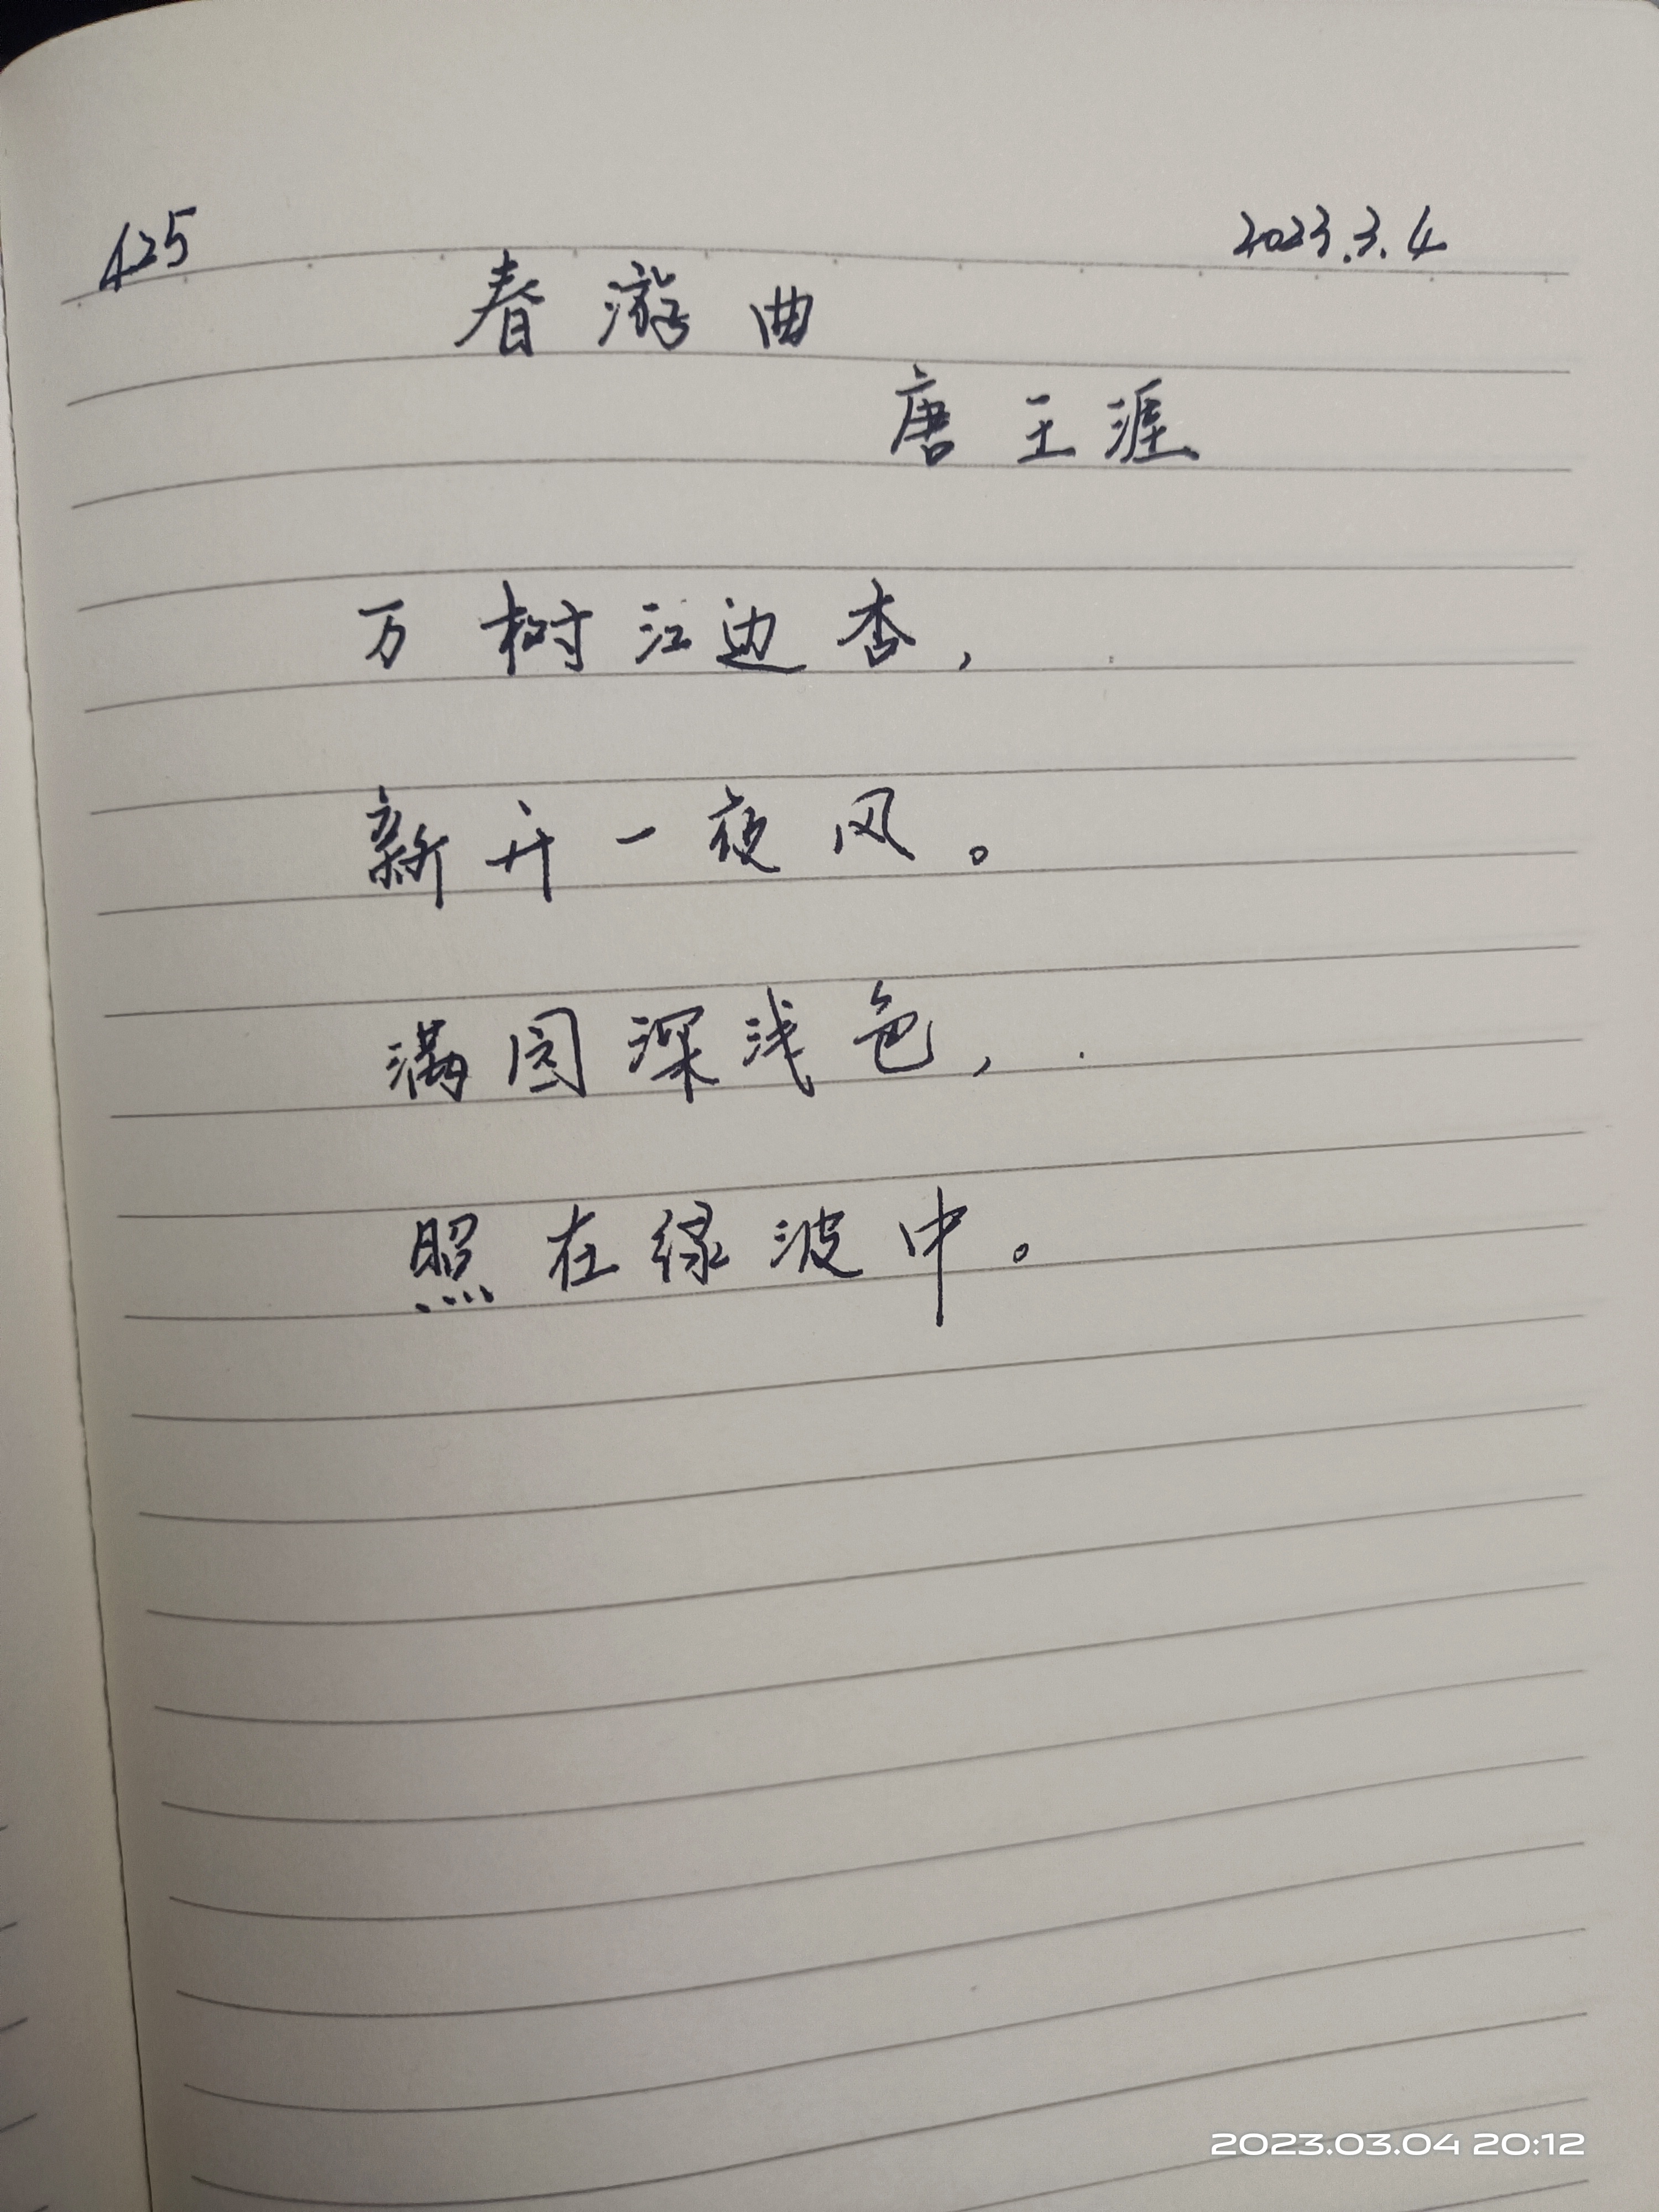 425 2023.3.4
春游曲
唐 王涯
万树江边杏，
新开一夜风。
满园深浅色，
照在绿波中。
2023.03.04 20:12